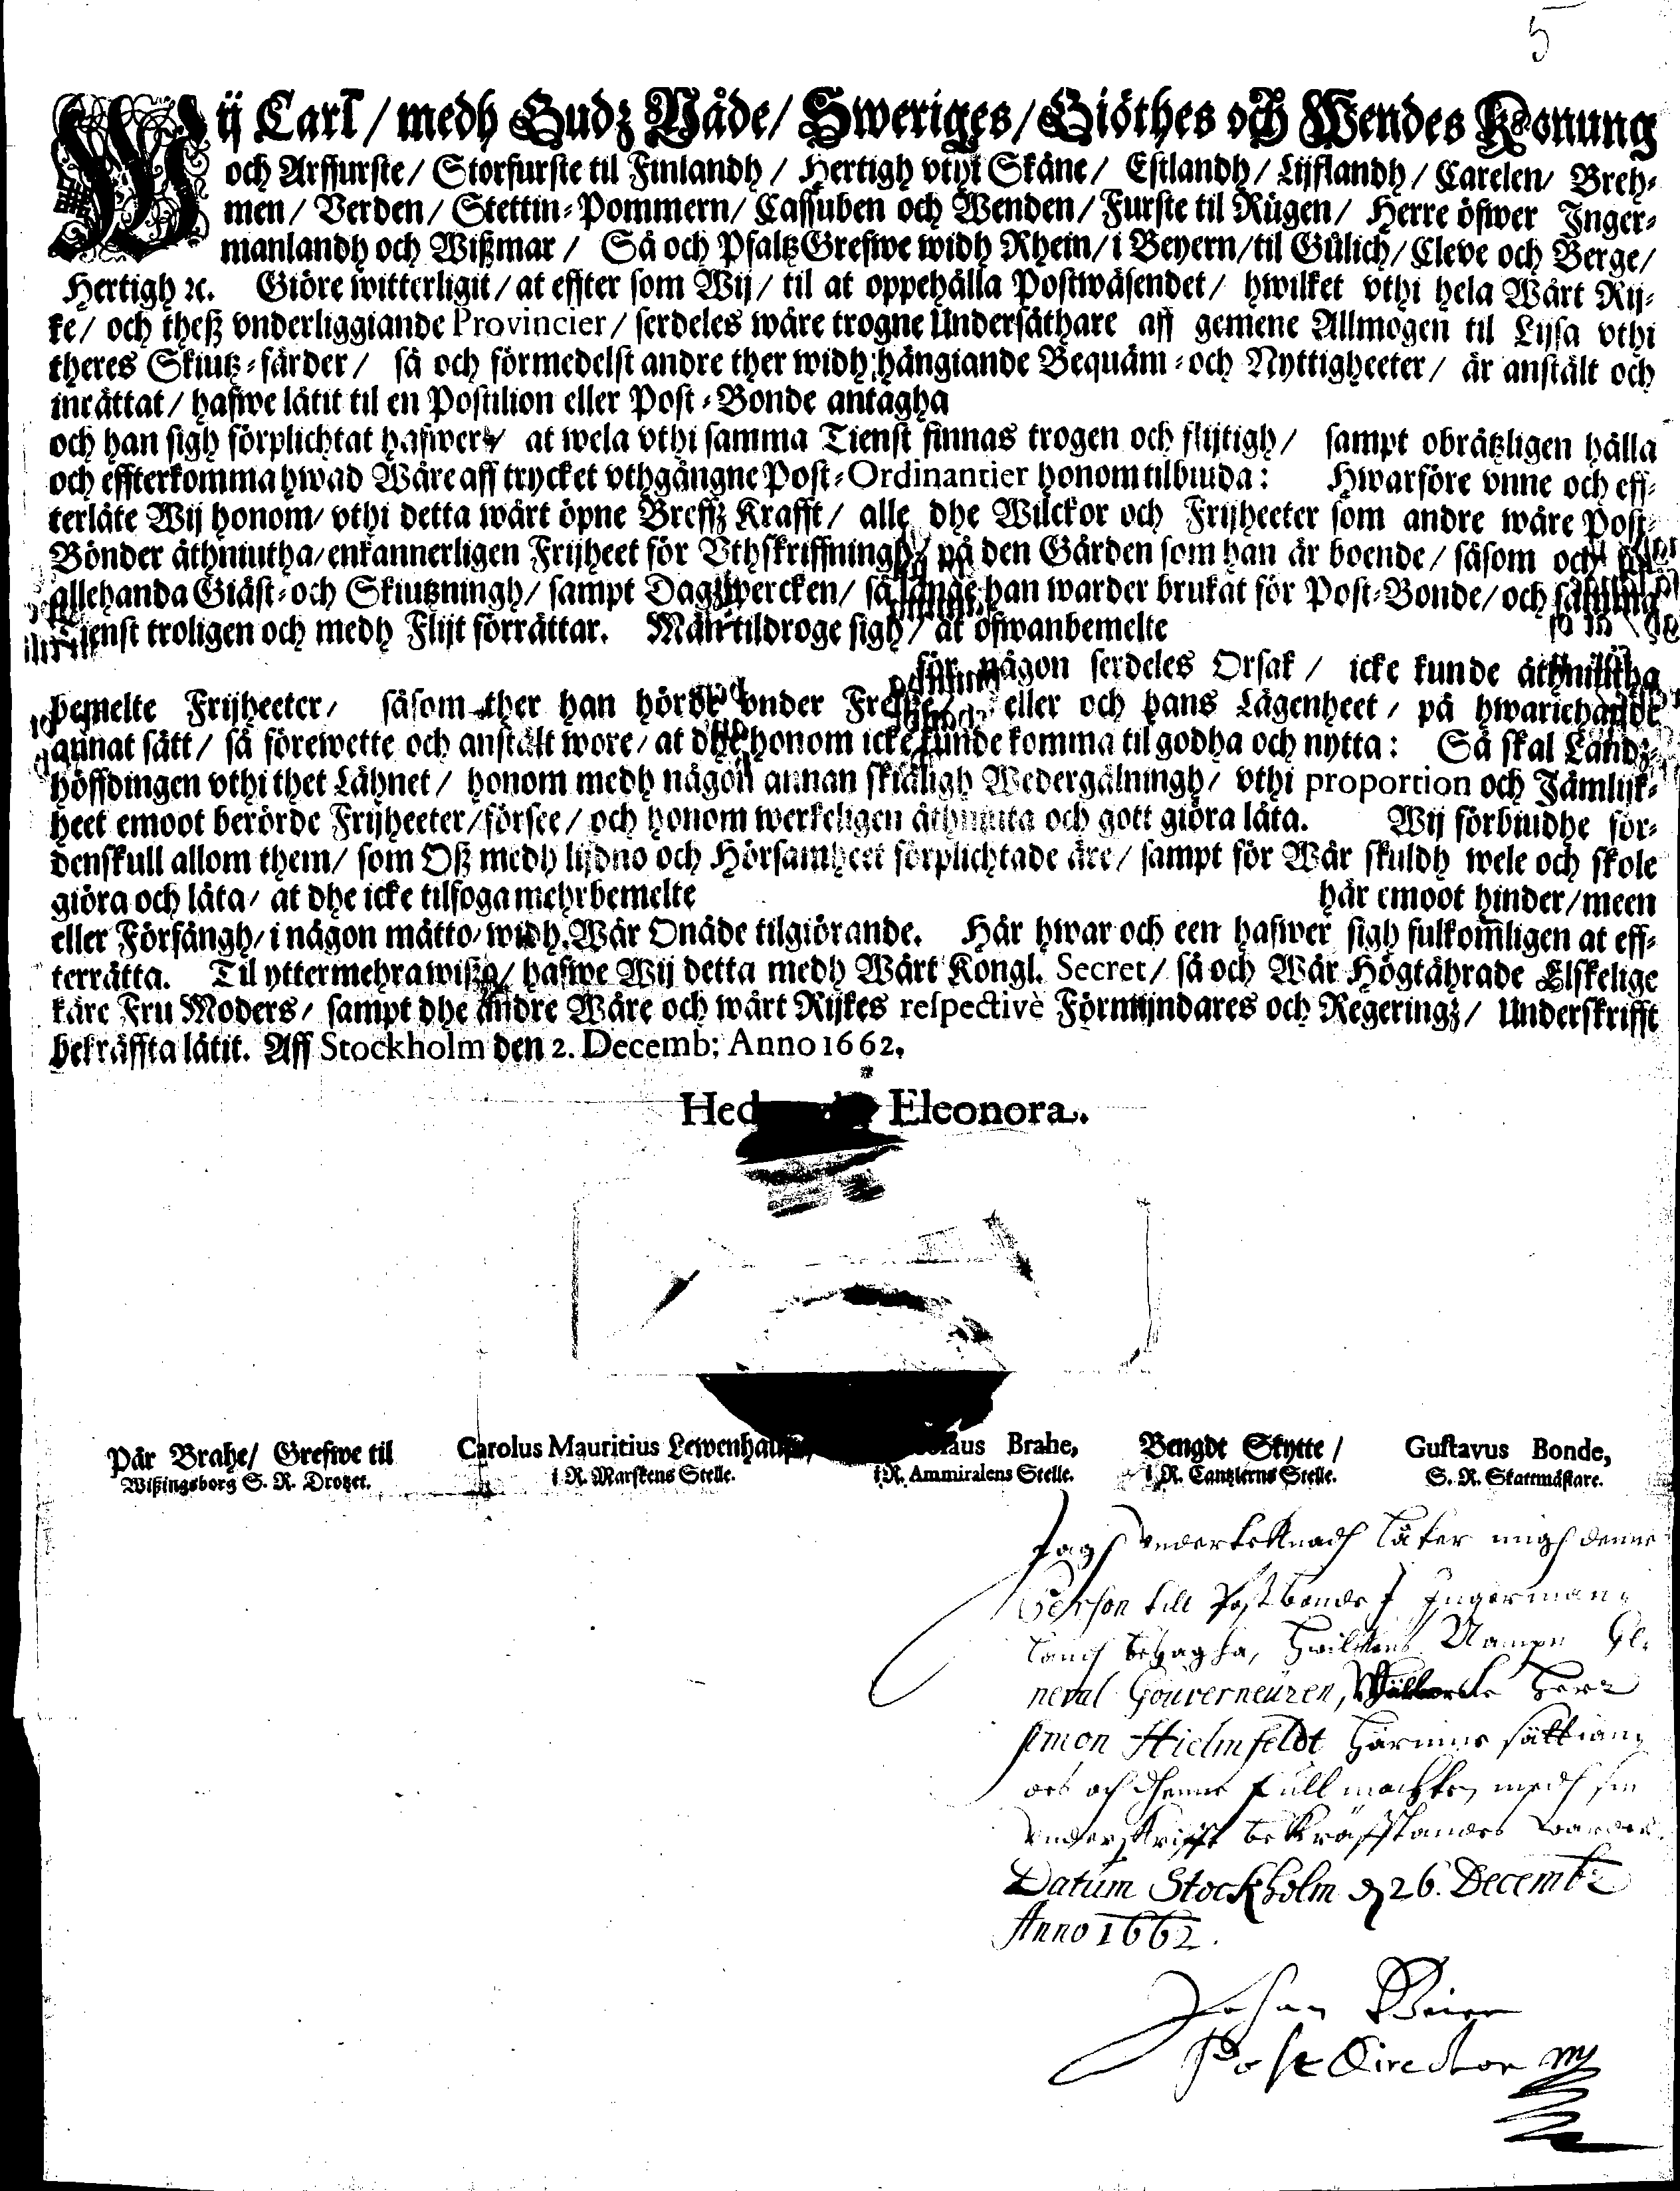 5
Wij Carl / medh Gudz Nåde / Sweriges / Giöthes och Wendes Konung
och Arffurste / Storfurste til Finlandh / Hertigh vthi Skåne / Estlandh / Lijflandh / Carelen / Breh-
men / Verden / Stettin-Pommern / Cassuben och Wenden / Furste til Rügen / Herre öfwer Inger-
manlandh och Wißmar / Så och PfaltzGrefwe widh Rhein / i Beyern / til Gülich / Cleve och Berge /
Hertigh ꝛc. Giöre witterligit / at effter som Wij / til at oppehålla Postwäsendet / hwilket vthi hela Wårt Rij-
ke / och theß vnderliggiande Provincier / serdeles wåre trogne Undersåthare aff gemene Allmogen til Lijsa vthi
theres Skiutz-färder / så och förmedelst andre ther widh hängiande Bequäm- och Nyttigheeter / är anstält och
inrättat / hafwe låtit til en Postilion eller Post-Bonde antagha
och han sigh förplichtat hafwer / at wela vthi samma Tienst finnas trogen och flijtigh / sampt obrätzligen hålla
och effterkomma hwad Wåre aff trycket vthgångne Post-Ordinantier honom tilbiuda: Hwarföre vnne och eff-
terläte Wij honom / vthi detta wårt öpne Breffz Krafft / alle dhe Wilckor och Frijheeter som andre wåre Post-
Bönder åthniutha / enkannerligen Frijheet för Vthskriffningh / på den Gården som han är boende / såsom och för
allehanda Giäst- och Skiutzningh / sampt Dagzwercken / så länge han warder brukat för Post-Bonde / och samma
Tienst troligen och medh Flijt förrättar. Män tildroge sigh / at ofwanbemelte
för någon serdeles Orsak / icke kunde åthniutha
bemelte Frijheeter / såsom ther han hörde vnder Frelße / eller och hans Lägenheet / på hwariehande
annat sätt / så förewette och anstält wore / at dhe honom icke kunde komma til godha och nytta: Så skal Landz-
höffdingen vthi thet Lähnet / honom medh någon annan skiäligh Wedergälningh / vthi proportion och Jämlijk-
heet emoot berörde Frijheeter / försee / och honom werkeligen åthniuta och gott giöra låta. Wij förbiudhe för-
denskull allom them / som Oß medh lijdno och Hörsamheet förplichtade äre / sampt för Wår skuldh wele och skole
giöra och låta / at dhe icke tilfoga mehrbemelte här emoot hinder / meen
eller Förfångh / i någon måtto / widh Wår Onåde tilgiörande. Här hwar och een hafwer sigh fulkomligen at eff-
terrätta. Til yttermehra wißo / hafwe Wij detta medh Wårt Kongl. Secret / så och Wår Högtährade Elskelige
käre Fru Moders / sampt dhe andre Wåre och wårt Rijkes respectivè Förmyndares och Regeringz / Underskrifft
bekräffta låtit. Aff Stockholm den 2. Decemb: Anno 1662.
Eleonora.
Pär Brahe / Grefwe til Carolus Mauritius Lewenhaupt, Brahe, Bengdt Skytte / Gustavus Bonde,
Wißingsborg S. R. Drotzet. i R. Marskens Stelle. i R. Ammiralens Stelle. i R. Cantzlerns Stelle. S. R. Skattmästare.
Jagh vndertecknadh låter migh denne
Person till Postbonde I Ingerman-
landh behagha, hwilkens Nampn Ge-
neral Gouverneuren, Herr
Simon Hielmfeldt härinne sättian-
des och dhenne fullmachten medh sin
underskrifft bekräfftandes warder.
Datum Stockholm d 26. Decembr
Anno 1662.
Johan Beier
Post Director